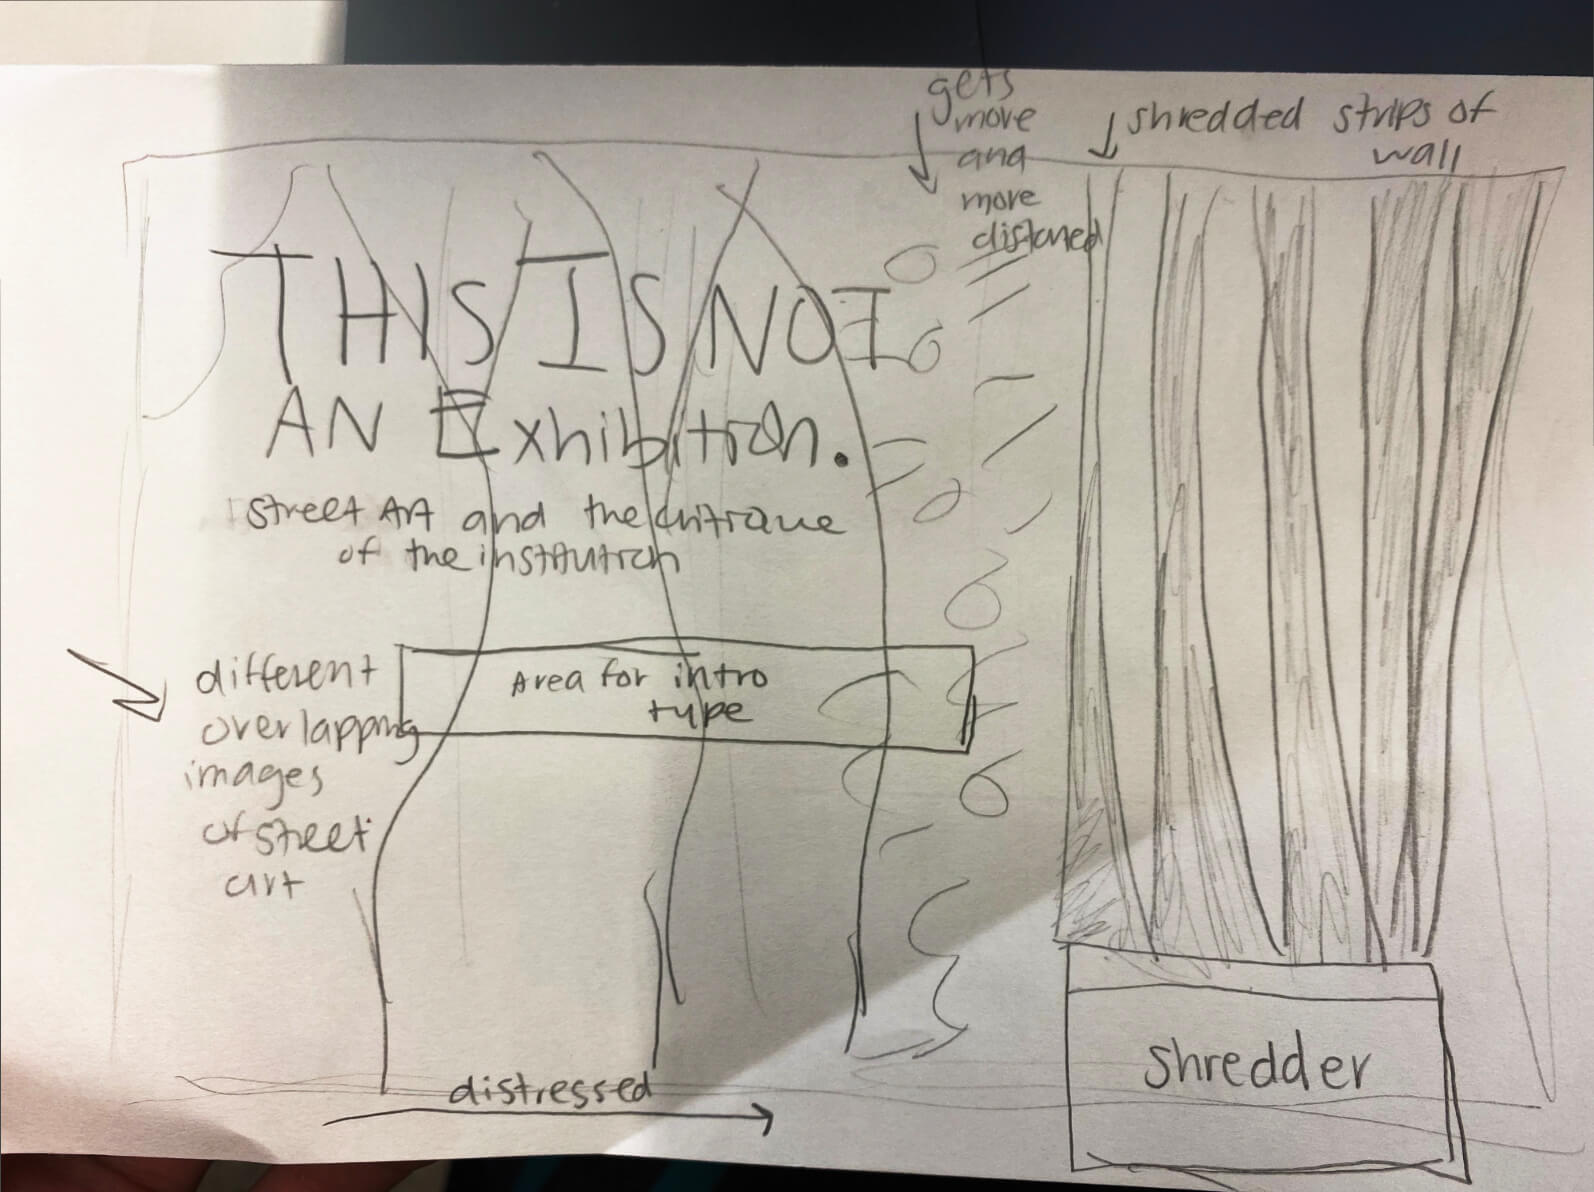 gets
more
and
more
distoned
shredded strips of
wall
THIS IS NOT
AN Exhibition.
Street Art and the critique
of the institution
different
overlapping
images
of street
art
Area for intro
type
distressed
shredder